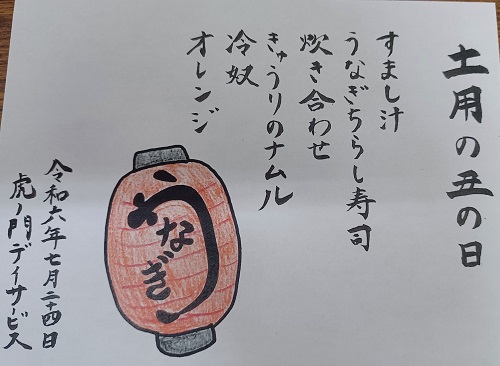 土用の丑の日
すまし汁
うなぎちらし寿司
炊き合わせ
きゅうりのナムル
冷奴
オレンジ
うなぎ
令和六年七月二十四日
虎ノ門デイサービス